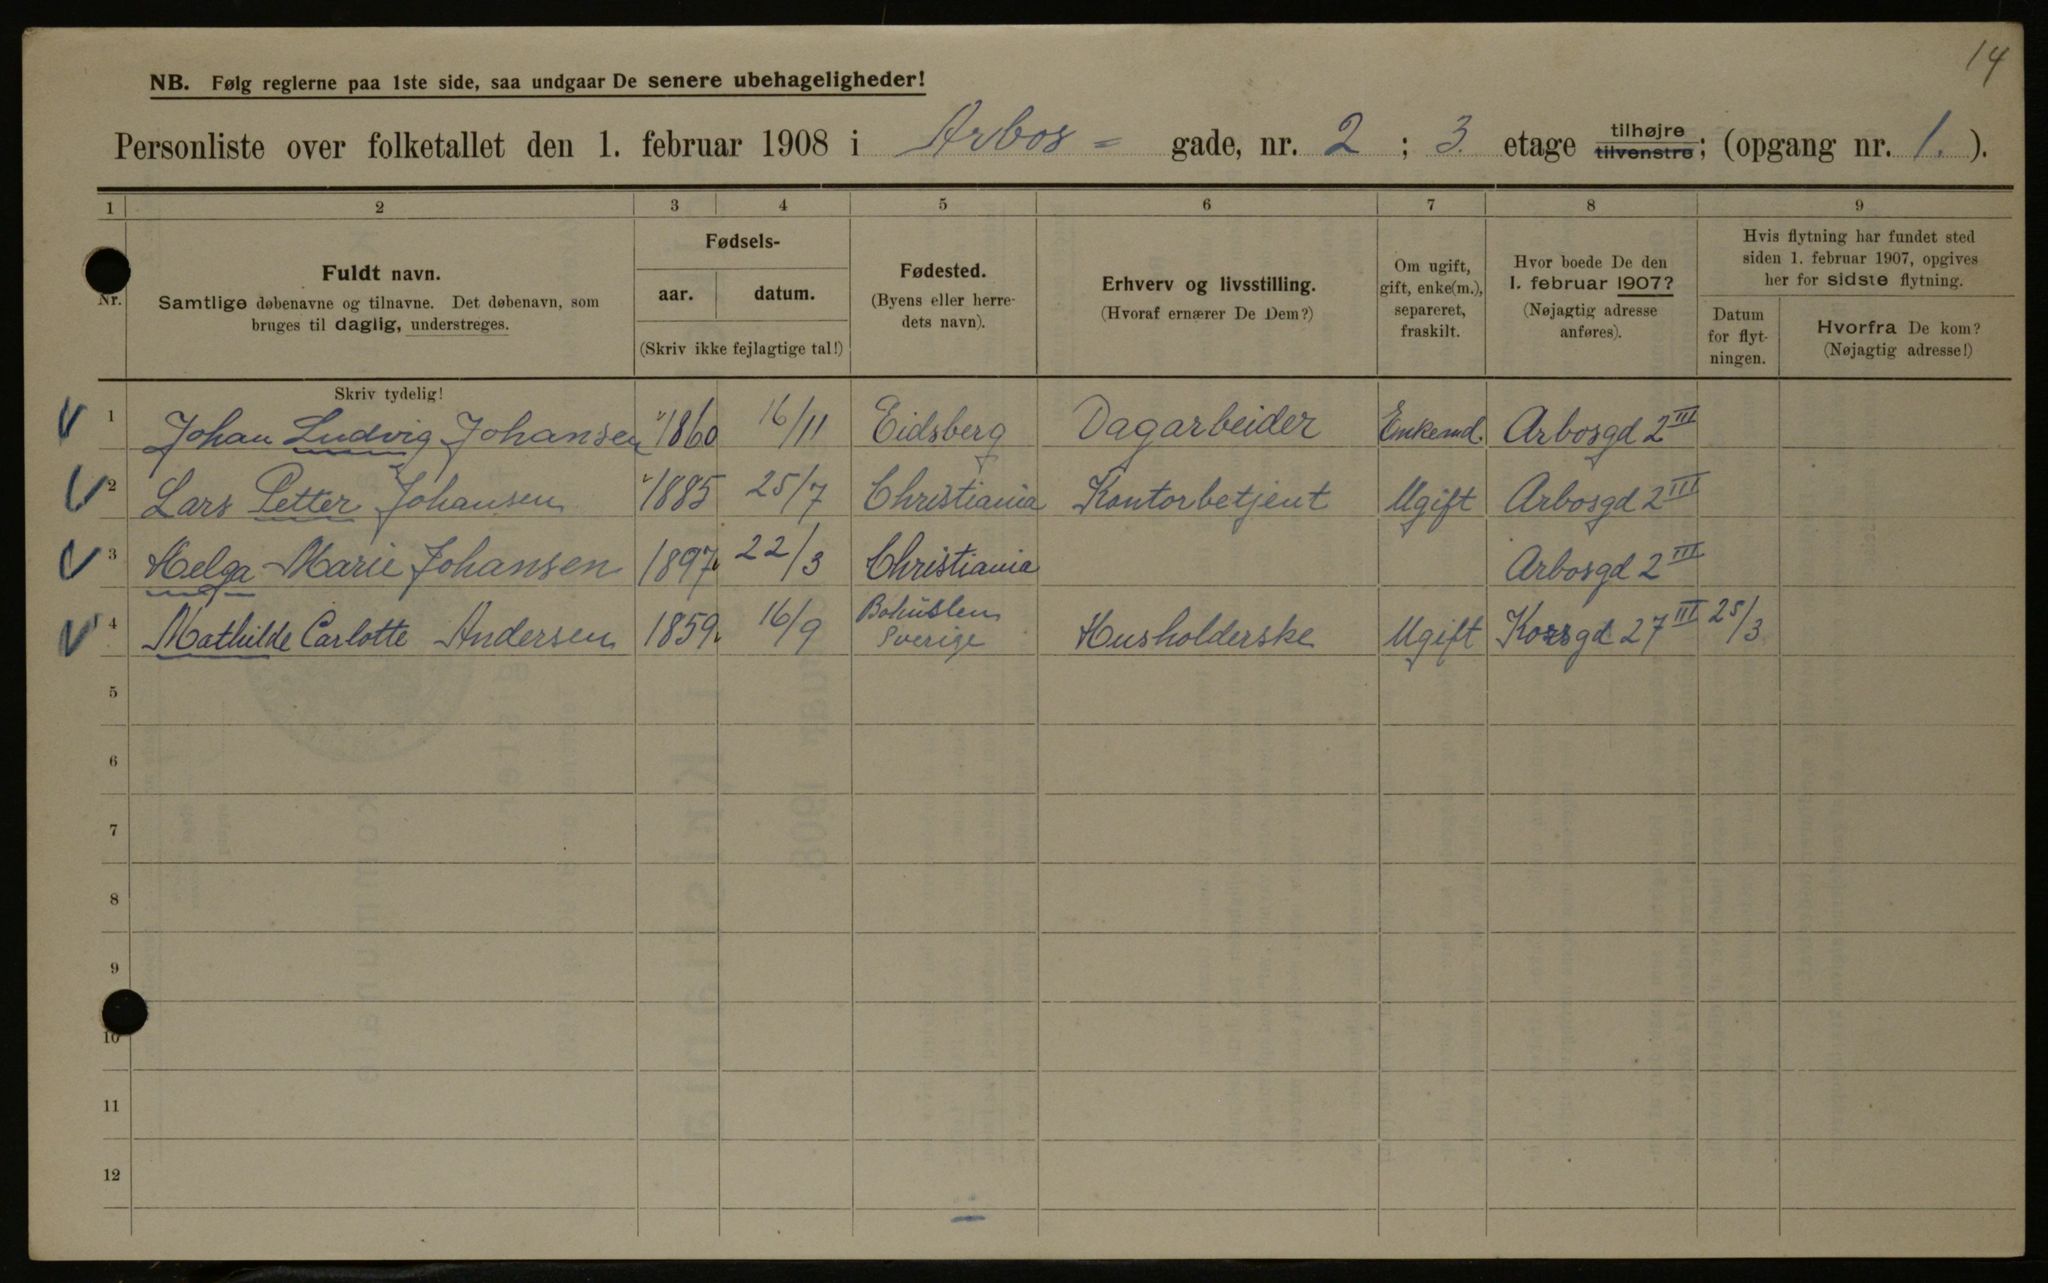 14
NB. Følg reglerne paa 1ste side, saa undgaar De senere ubehageligheder!
Personliste over folketallet den 1. februar 1908 i Arbos= gade, nr. 2; 3. etage tilhøjre tilvenstre; (opgang nr. 1.).
1 2 3 4 5 6 7 8 9
Nr.
Fuldt navn.
Samtlige døbenavne og tilnavne. Det døbenavn, som
bruges til daglig, understreges.
Fødsels-
aar. datum.
(Skriv ikke fejlagtige tal!)
Fødested.
(Byens eller herre-
dets navn).
Erhverv og livsstilling.
(Hvoraf ernærer De Dem?)
Om ugift,
gift, enke(m.),
separeret,
fraskilt.
Hvor boede De den
1. februar 1907?
(Nøjagtig adresse
anføres).
Hvis flytning har fundet sted
siden 1. februar 1907, opgives
her for sidste flytning.
Datum
for flyt-
ningen.
Hvorfra De kom?
(Nøjagtig adresse!)
Skriv tydelig!
1 Johan Ludvig Johansen 1860 16/11 Eidsberg Dagarbeider Enkemd. Arbosgd 2 III
2 Lars Petter Johansen 1885 25/7 Christiania Kontorbetjent Ugift Arbosgd 2 III
3 Helga Marie Johansen 1897 22/3 Christiania Arbosgd 2 III
4 Mathilde Carlotte Andersen 1859 16/9 Bohuslen Sverige Husholderske Ugift Korsgd 27 III 25/3
5
6
7
8
9
10
11
12